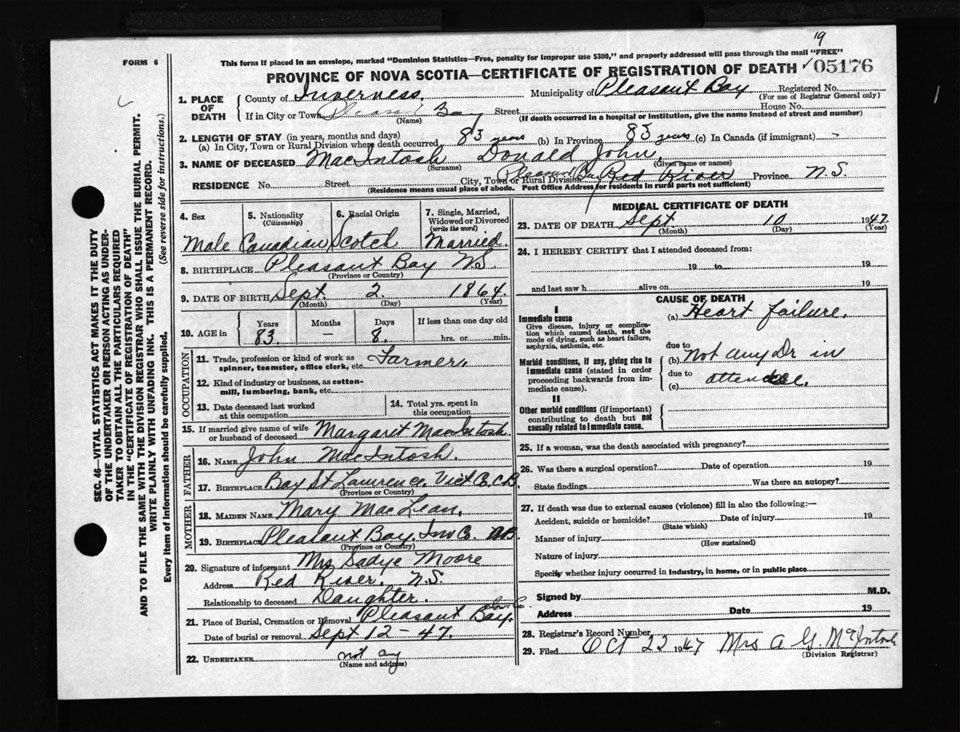 19
This form if placed in an envelope, marked "Dominion Statistics—Free, penalty for improper use $300," and properly addressed will pass through the mail "FREE"
FORM 6
PROVINCE OF NOVA SCOTIA—CERTIFICATE OF REGISTRATION OF DEATH 05176
1. PLACE OF DEATH County of Inverness Municipality of Pleasant Bay Registered No.
(For use of Registrar General only)
If in City or Town Pleasant Bay Street House No.
(Name) (If death occurred in a hospital or institution, give the name instead of street and number)
2. LENGTH OF STAY (in years, months and days)
(a) In City, Town or Rural Division where death occurred 83 years (b) In Province 83 years (c) In Canada (if immigrant) -
3. NAME OF DECEASED MacIntosh Donald John
(Surname) (Given name or names)
RESIDENCE No. Street City, Town or Rural Division Pleasant Bay Red River Province N.S.
(Residence means usual place of abode. Post Office Address for residents in rural parts not sufficient)
4. Sex 5. Nationality (Citizenship) 6. Racial Origin 7. Single, Married, Widowed or Divorced (write the word)
Male Canadian Scotch Married
8. BIRTHPLACE Pleasant Bay N.S.
(Province or Country)
9. DATE OF BIRTH Sept. 2 1864
(Month) (Day) (Year)
10. AGE in Years Months Days If less than one day old
83 - 8 hrs. or min.
OCCUPATION
11. Trade, profession or kind of work as spinner, teamster, office clerk, etc. Farmer
12. Kind of industry or business, as cotton-mill, lumbering, bank, etc.
13. Date deceased last worked at this occupation
14. Total yrs. spent in this occupation
15. If married give name of wife or husband of deceased Margaret MacIntosh
FATHER
16. NAME John MacIntosh
17. BIRTHPLACE Bay St Lawrence Vict Co. C.B.
(Province or Country)
MOTHER
18. MAIDEN NAME Mary MacLean
19. BIRTHPLACE Pleasant Bay. Inv Co.
(Province or Country)
20. Signature of informant Mrs Sadye Moore
Address Red River. N.S.
Relationship to deceased Daughter
21. Place of Burial, Cremation or Removal Pleasant Bay
Date of burial or removal Sept 12 - 47.
22. UNDERTAKER not any
(Name and address)
MEDICAL CERTIFICATE OF DEATH
23. DATE OF DEATH Sept. 10 1947
(Month) (Day) (Year)
24. I HEREBY CERTIFY that I attended deceased from:
19 to 19
and last saw h alive on 19
CAUSE OF DEATH
I
Immediate cause (a) Heart failure.
Give disease, injury or complication which caused death, not the mode of dying, such as heart failure, asphyxia, asthenia, etc.
due to
Morbid conditions, if any, giving rise to immediate cause (stated in order proceeding backwards from immediate cause). (b) Not any Dr in
due to
(c)
II
Other morbid conditions (if important) contributing to death but not causally related to immediate cause.
25. If a woman, was the death associated with pregnancy?
26. Was there a surgical operation? Date of operation 19
State findings Was there an autopsy?
27. If death was due to external causes (violence) fill in also the following:
Accident, suicide or homicide? Date of injury 19
(State which)
Manner of injury
(How sustained)
Nature of injury
Specify whether injury occurred in industry, in home, or in public place
Signed by M.D.
Address Date 19
28. Registrar's Record Number
29. Filed Oct 22 1947 Mrs A G. McIntosh
(Division Registrar)
SEC. 46—VITAL STATISTICS ACT MAKES IT THE DUTY
OF THE UNDERTAKER OR PERSON ACTING AS UNDER-
TAKER TO OBTAIN ALL THE PARTICULARS REQUIRED
IN THE "CERTIFICATE OF REGISTRATION OF DEATH"
AND TO FILE THE SAME WITH THE DIVISION REGISTRAR WHO SHALL ISSUE THE BURIAL PERMIT.
WRITE PLAINLY WITH UNFADING INK. THIS IS A PERMANENT RECORD.
Every item of information should be carefully supplied. (See reverse side for instructions.)